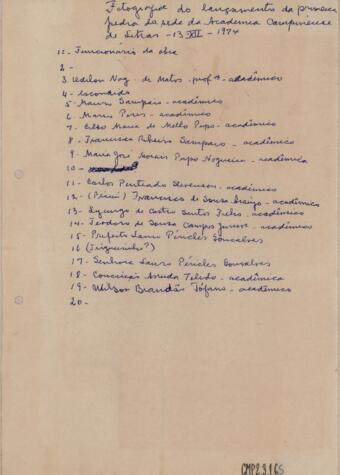 Fotografia do lançamento da primeira
pedra da sede da Academia Campinense
de Letras - 13 XII - 1974
1 - Funcionário da obra
2 -
3 - Uedilon Naz. de Matos - profº - acadêmico
4 - escondido
5 - Mauro Sampaio - acadêmico
6 - Mario Pires - acadêmico
7 - Celso Maria de Mello Pupo - acadêmico
8 - Francisco Ribeiro Sampaio - acadêmico
9 - Maria José Morais Pupo Nogueira - acadêmica
10 -
11 - Carlos Penteado Stevenson - acadêmico
12 - (Piauí) Francisco de Souza Araujo - acadêmico
13 - Lycurgo de Castro Santos Filho - acadêmico
14 - Teodoro de Souza Campos Junior - acadêmico
15 - Prefeito Lauro Péricles Gonçalves
16 (?)
17 - Senhora Lauro Péricles Gonçalves
18 - Conceição Arruda Toledo - acadêmica
19 - Wilson Brandão Tófano - acadêmico
20 -
CMP2.9.1.65